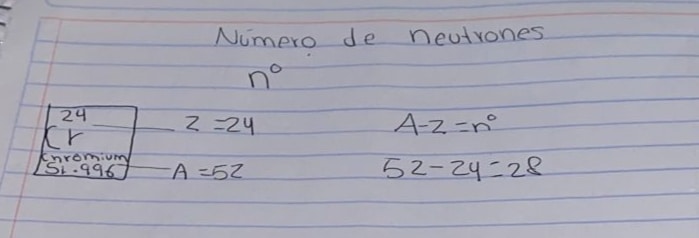 Número de neutrones
n°
24
Cr
Chromium
51.996
Z=24
A=52
A-Z=n°
52-24=28